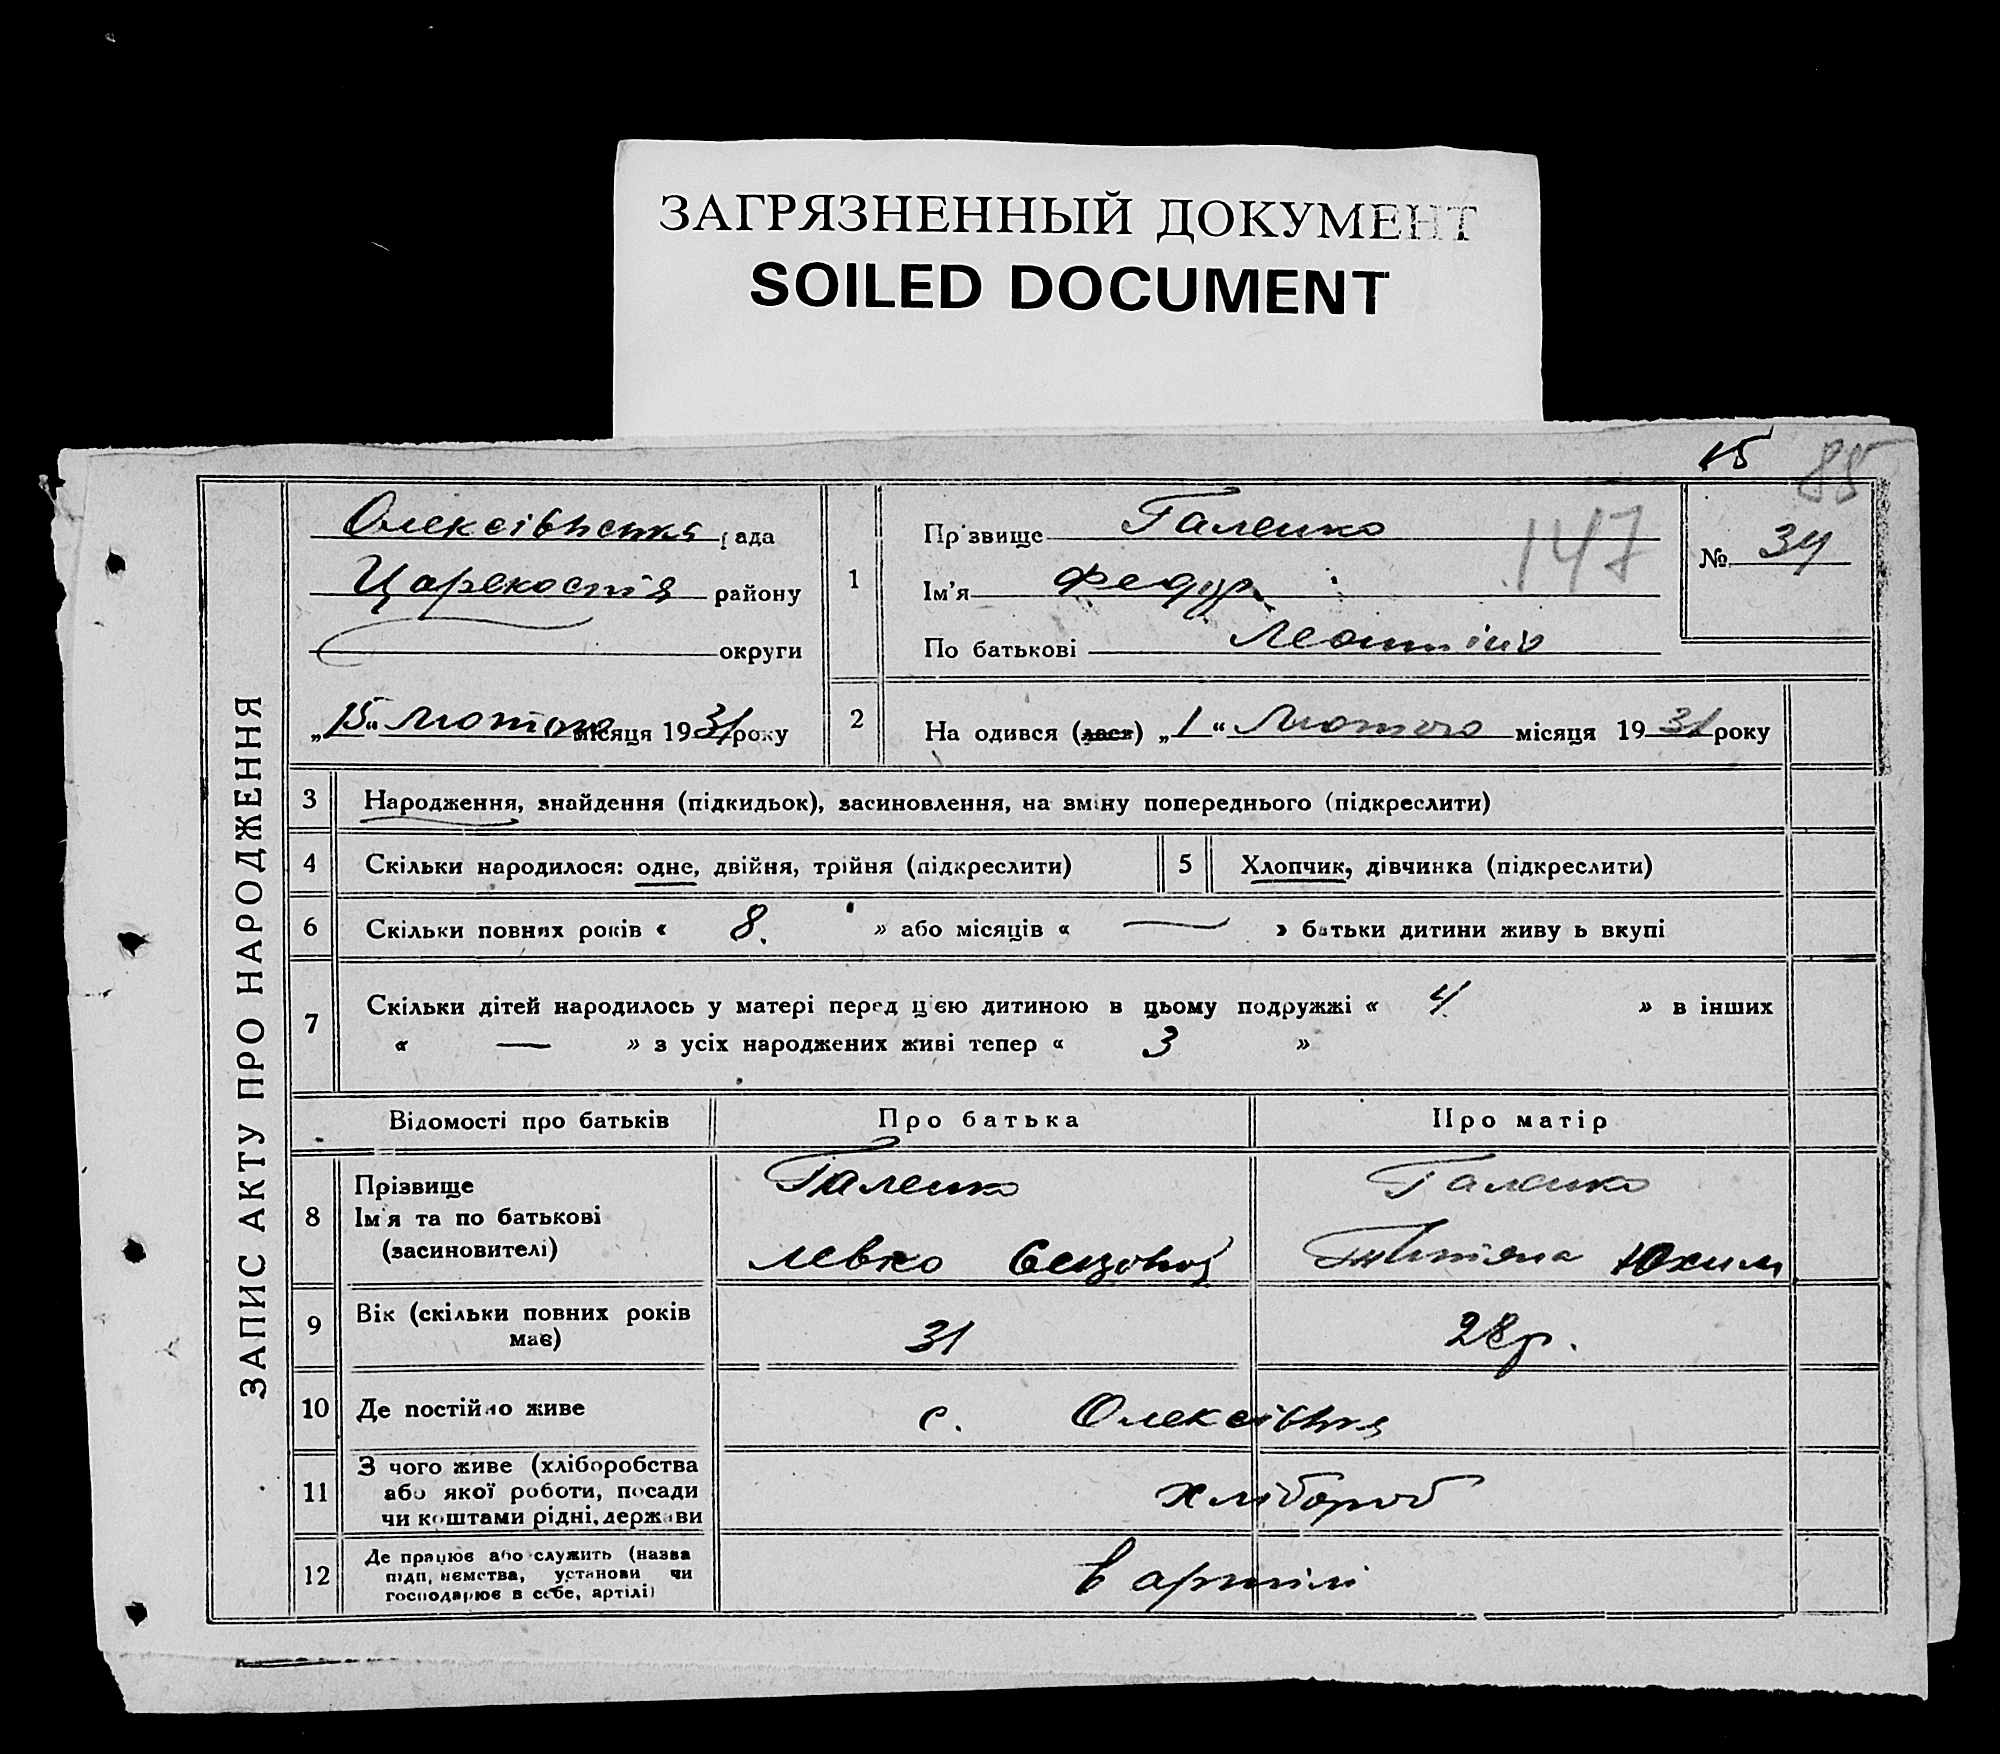 ЗАГРЯЗНЕННЫЙ ДОКУМЕНТ
SOILED DOCUMENT
15
85
147
ЗАПИС АКТУ ПРО НАРОДЖЕННЯ
Олексіївська рада
району
округи
„15“ Лютого місяця 1931 року
1
Прізвище Галенко
Ім'я Федір
По батькові
№ 34
2
На одився (лася) „1“ Лютого місяця 1931 року
3 Народження, знайдення (підкидьок), засиновлення, на зміну попереднього (підкреслити)
4 Скільки народилося: одне, двійня, трійня (підкреслити)
5 Хлопчик, дівчинка (підкреслити)
6 Скільки повних років « 8. » або місяців « — » батьки дитини живу ь вкупі
7 Скільки дітей народилось у матері перед цією дитиною в цьому подружжі « 4 » в інших
« — » з усіх народжених живі тепер « 3 »
Відомості про батьків Про батька Про матір
8 Прізвище
Ім'я та по батькові
(засиновителі)
Галенко
Левко
Галенко
Тетяна Юхим
9 Вік (скільки повних років
має)
31
28р.
10 Де постійно живе
с. Олексіївка
11 З чого живе (хліборобства
або якої роботи, посади
чи коштами рідні, держави
хлібороб
12 Де працює або служить (назва
підп,иємства, установи чи
господарює в себе, артілі)
в артілі